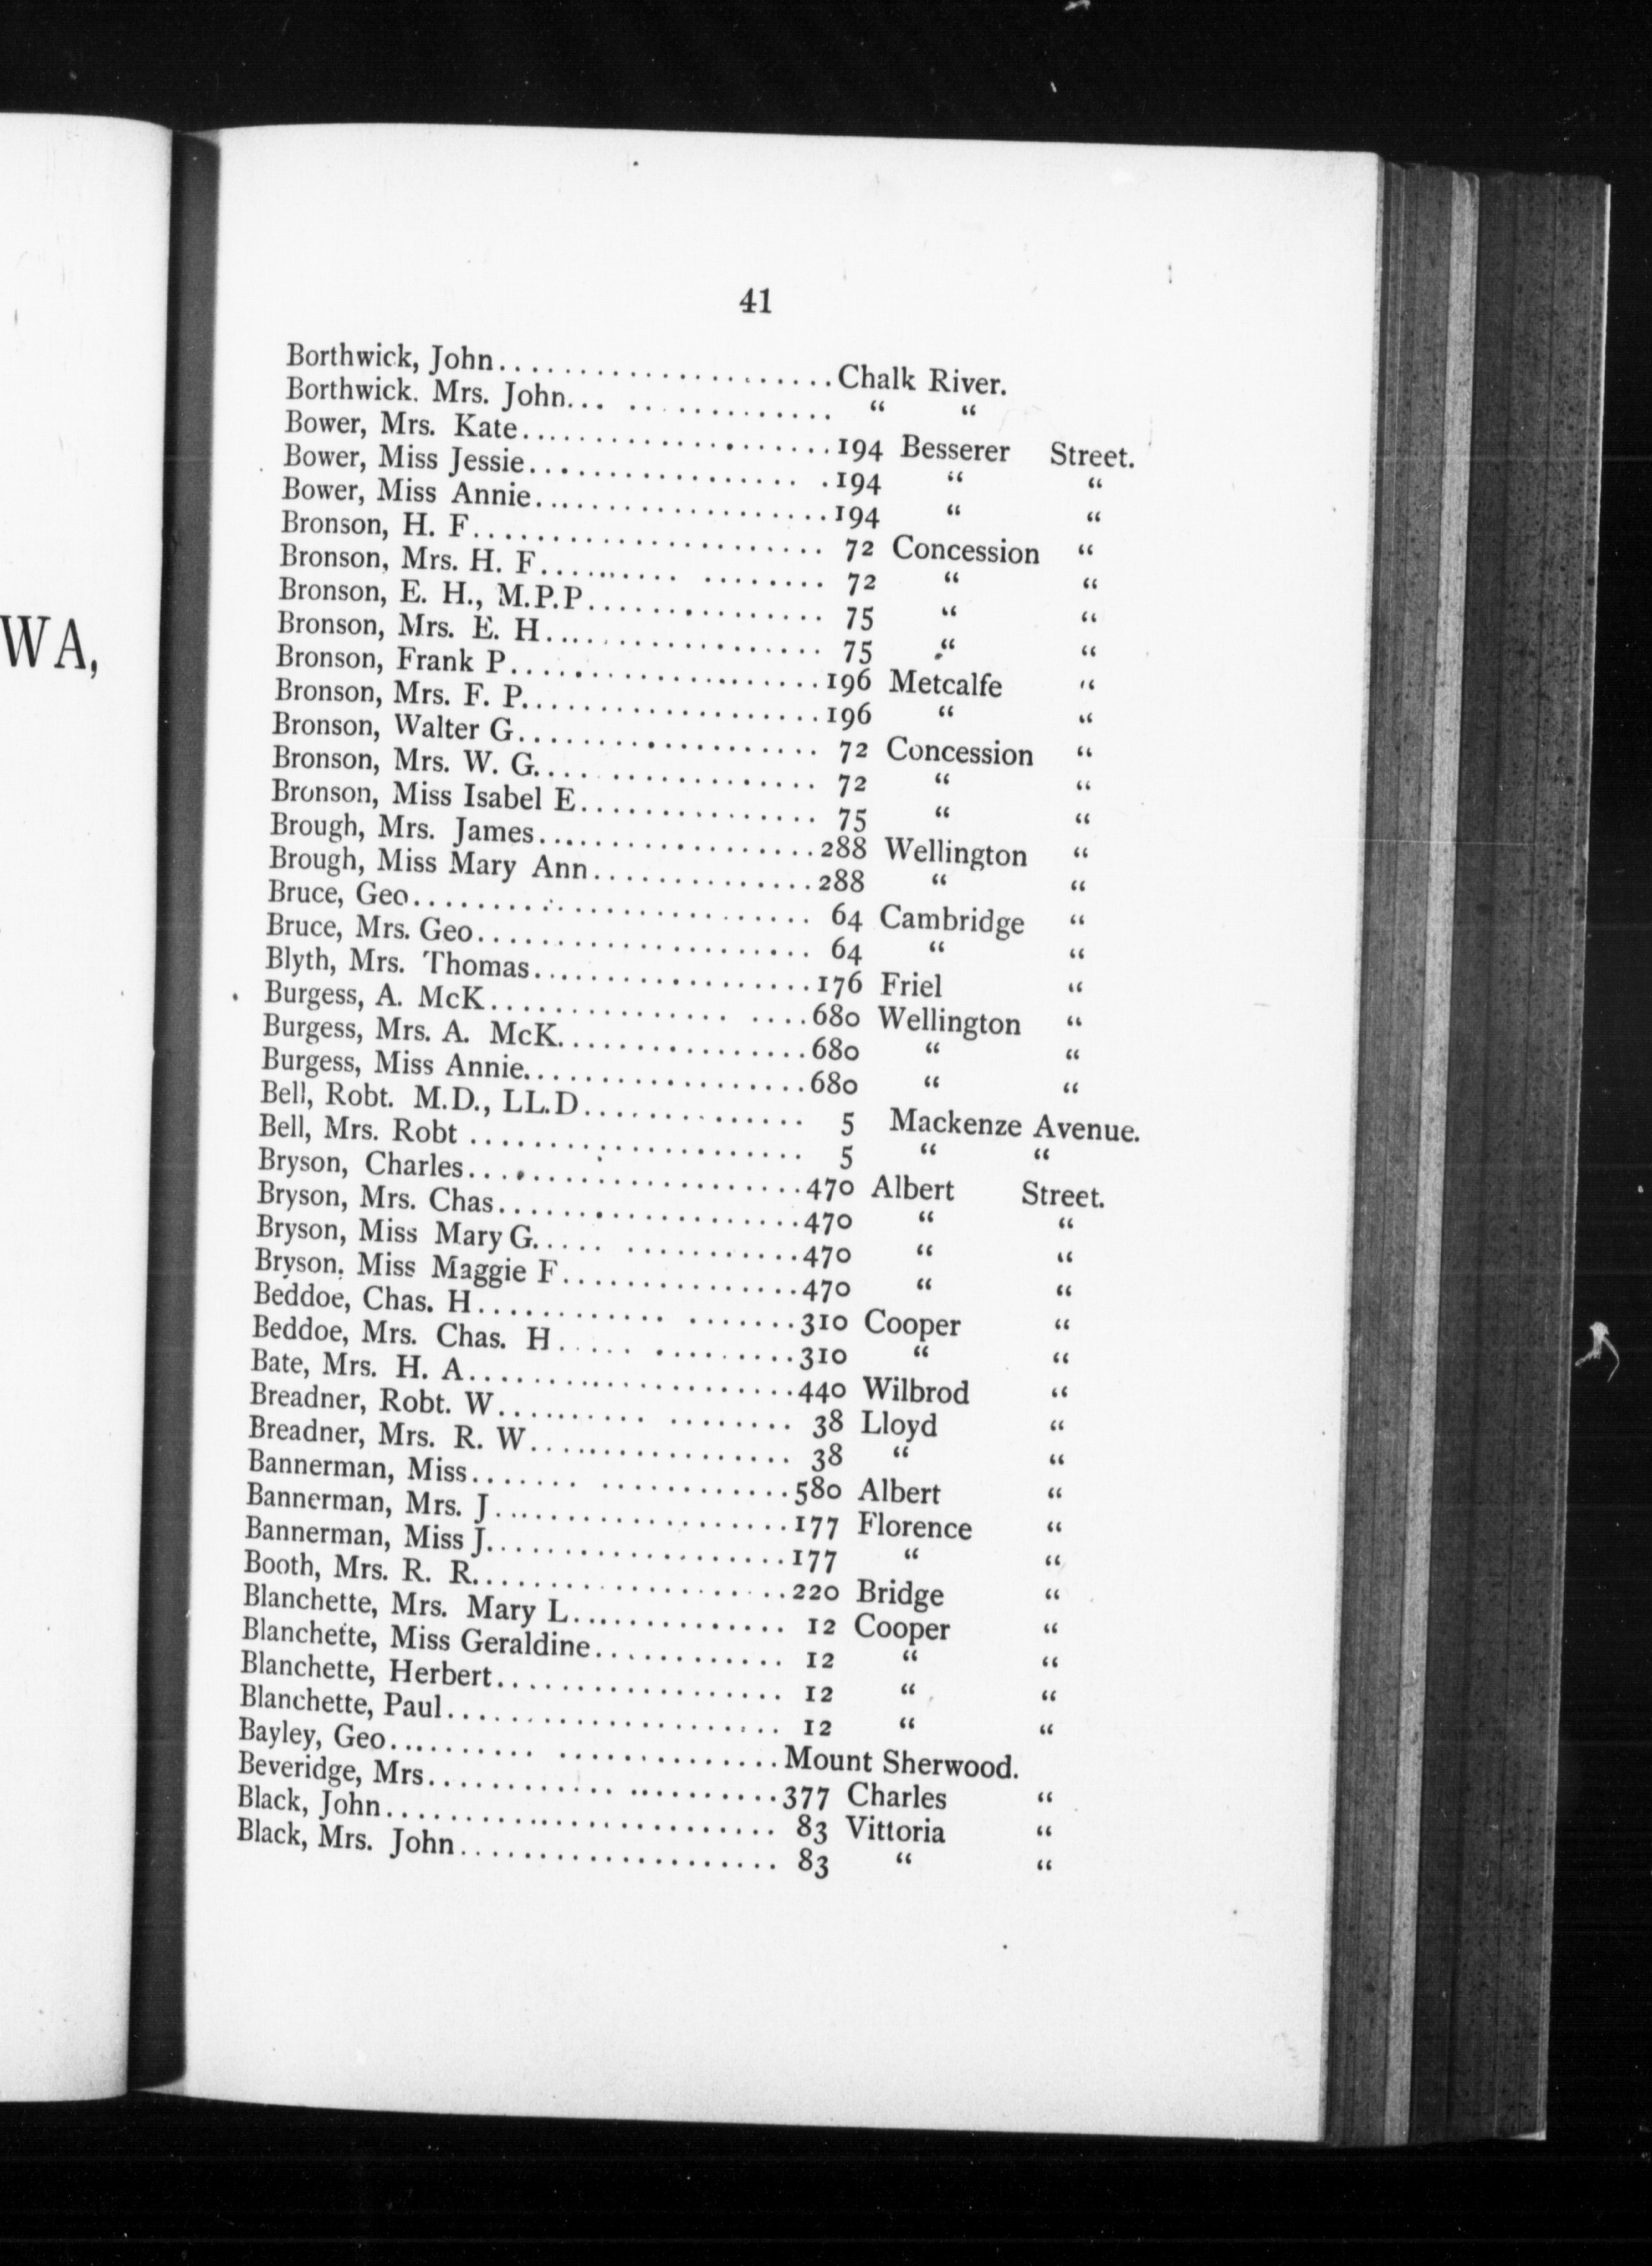 WA,
41
Borthwick, John......................Chalk River.
Borthwick. Mrs. John... .............. “ “
Bower, Mrs. Kate....................194 Besserer Street.
Bower, Miss Jessie................. .194 “ “
Bower, Miss Annie...................194 “ “
Bronson, H. F...................... 72 Concession “
Bronson, Mrs. H. F.......... ........ 72 “ “
Bronson, E. H., M.P.P............... 75 “ “
Bronson, Mrs. E. H.................. 75 “ “
Bronson, Frank P....................196 Metcalfe “
Bronson, Mrs. F. P...................196 “ “
Bronson, Walter G................... 72 Concession “
Bronson, Mrs. W. G.... ............. 72 “ “
Bronson, Miss Isabel E............... 75 “ “
Brough, Mrs. James..................288 Wellington “
Brough, Miss Mary Ann..............288 “ “
Bruce, Geo......................... 64 Cambridge “
Bruce, Mrs. Geo..................... 64 “ “
Blyth, Mrs. Thomas..................176 Friel “
Burgess, A. McK............... ....680 Wellington “
Burgess, Mrs. A. McK................680 “ “
Burgess, Miss Annie..................680 “ “
Bell, Robt. M.D., LL.D.............. 5 Mackenze Avenue.
Bell, Mrs. Robt ..................... 5 “ “
Bryson, Charles.....................470 Albert Street.
Bryson, Mrs. Chas...................470 “ “
Bryson, Miss Mary G..... ...........470 “ “
Bryson. Miss Maggie F...............470 “ “
Beddoe, Chas. H............ .......310 Cooper “
Beddoe, Mrs. Chas. H..... .........310 “ “
Bate, Mrs. H. A.....................440 Wilbrod “
Breadner, Robt. W.......... ........ 38 Lloyd “
Breadner, Mrs. R. W................. 38 “ “
Bannerman, Miss....... ............580 Albert “
Bannerman, Mrs. J...................177 Florence “
Bannerman, Miss J...................177 “ “
Booth, Mrs. R. R....................220 Bridge “
Blanchette, Mrs. Mary L.............. 12 Cooper “
Blanchette, Miss Geraldine............ 12 “ “
Blanchette, Herbert.................. 12 “ “
Blanchette, Paul..................... 12 “ “
Bayley, Geo.......... ..............Mount Sherwood.
Beveridge, Mrs............ ..........377 Charles “
Black, John......................... 83 Vittoria “
Black, Mrs. John.................... 83 “ “